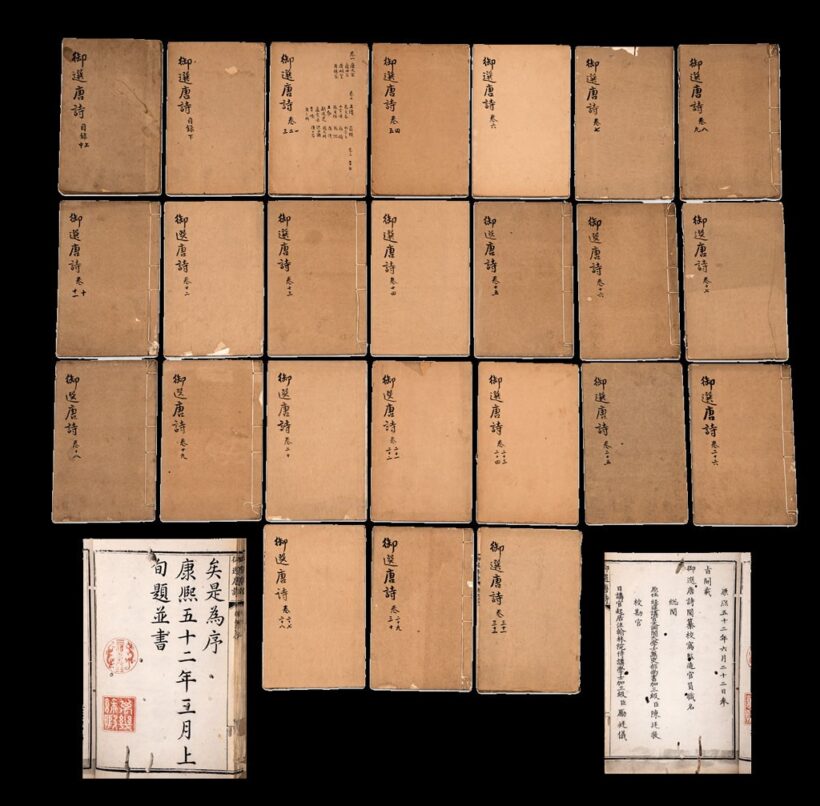 御選唐詩 目錄 上中
御選唐詩 目錄下
御選唐詩 卷 一二三
御選唐詩 卷 四五
御選唐詩 卷六
御選唐詩 卷七
御選唐詩 卷 八九
御選唐詩 卷 十 十一
御選唐詩 卷十二
御選唐詩 卷十三
御選唐詩 卷十四
御選唐詩 卷十五
御選唐詩 卷十六
御選唐詩 卷十七
御選唐詩 卷十八
御選唐詩 卷十九
御選唐詩 卷二十
御選唐詩 卷 二十一 二十二
御選唐詩 卷 二十三 二十四
御選唐詩 卷二十五
御選唐詩 卷二十六
御選唐詩 卷 二十七 二十八
御選唐詩 卷 二十九 三十
御選唐詩 卷 三十一 三十二
御選唐詩
矣是為序
康熙五十二年三月上
旬題並書
康熙五十二年六月二十二日奉
旨開載
御選唐詩閱纂校寫監造官員職名
總閱
原任經筵講官文淵閣大學士兼吏部尚書加三級臣陳廷敬
校勘官
日講官起居注翰林院侍講學士加三級臣勵廷儀